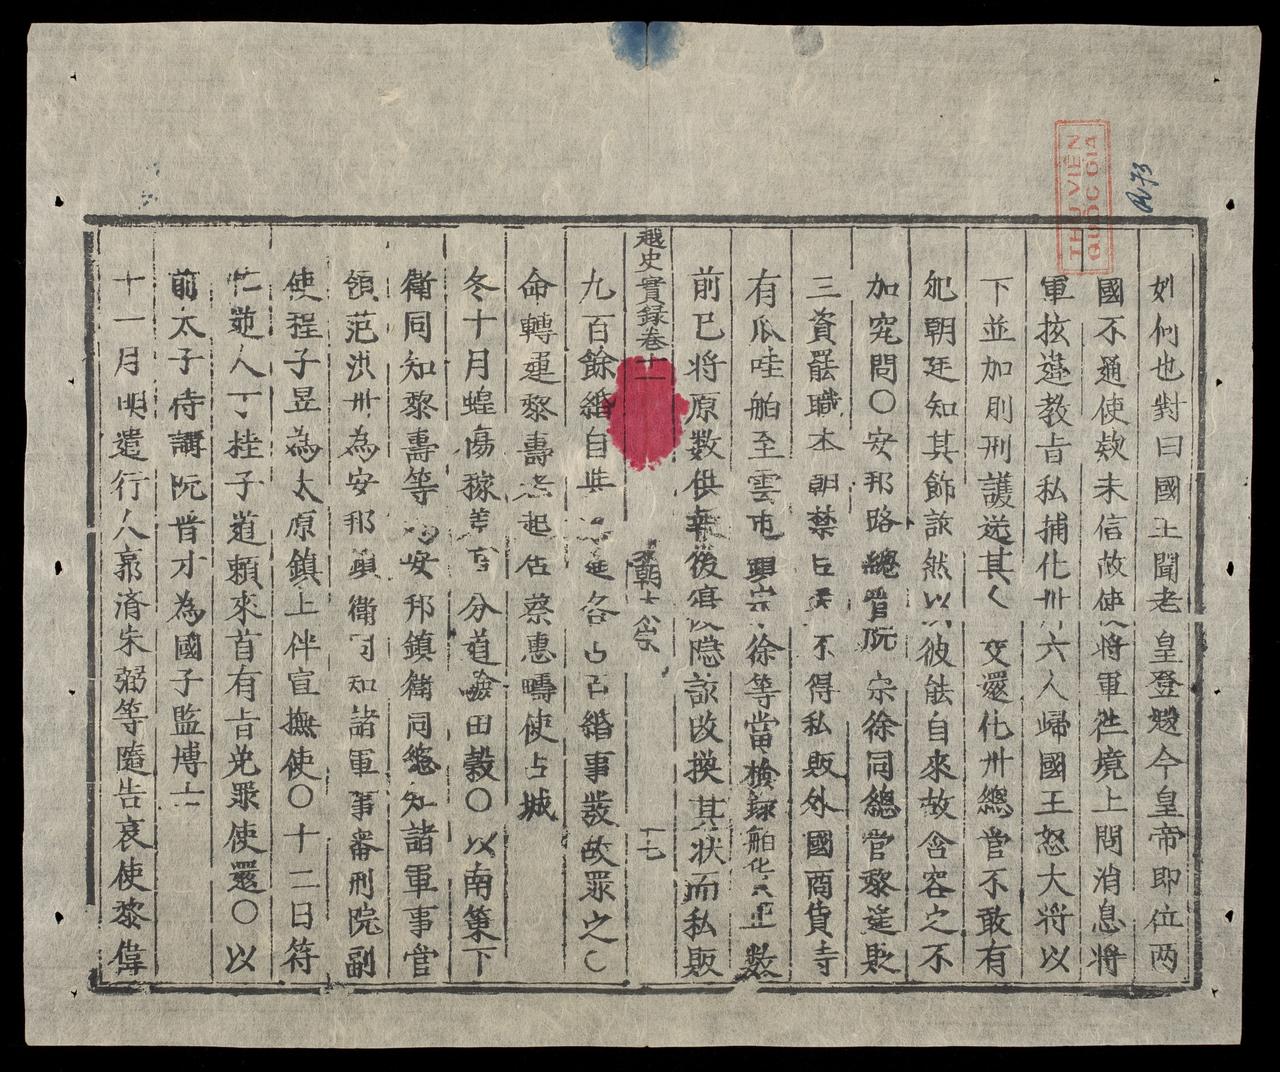 如何也對曰國王聞老皇登遐今皇帝即位兩
國不通使欵未信故使將軍徃境上問消息將
軍按違教旨私捕化州六人歸國王怒大將以
下並加刖刑護送其人交還化州總管不敢有
犯朝廷知其飾詞然以彼能自來故含容之不
加究問〇安邦路總管阮宗徐同總管黎遥貶
三資罷職本朝禁占不得私販外國商貨寺
有瓜哇舶至雲屯鎮宗徐等當檢録舶貨正數
前已將原數供報後復隱該改換其狀而私販
越史實録卷十一
黎朝太宗
十七
九百餘緡自與遥各占百緡事發故罪之〇
命轉運黎壽老起居蔡惠疇使占城
冬十月蝗傷稼差官分道驗田穀〇以南策下
衛同知黎壽等為安邦鎮衛同總知諸軍事官
領范洪州為安邦鎮衛同知諸軍事審刑院副
使程子昱為太原鎮上伴宣撫使〇十二日符
忙蓢人丁桂子道賴來首有旨免罪使還〇以
前太子侍講阮晋才為國子監博士
十一月明遣行人郭濟朱弼等隨告哀使黎偉
THƯ VIỆN
QUỐC GIA